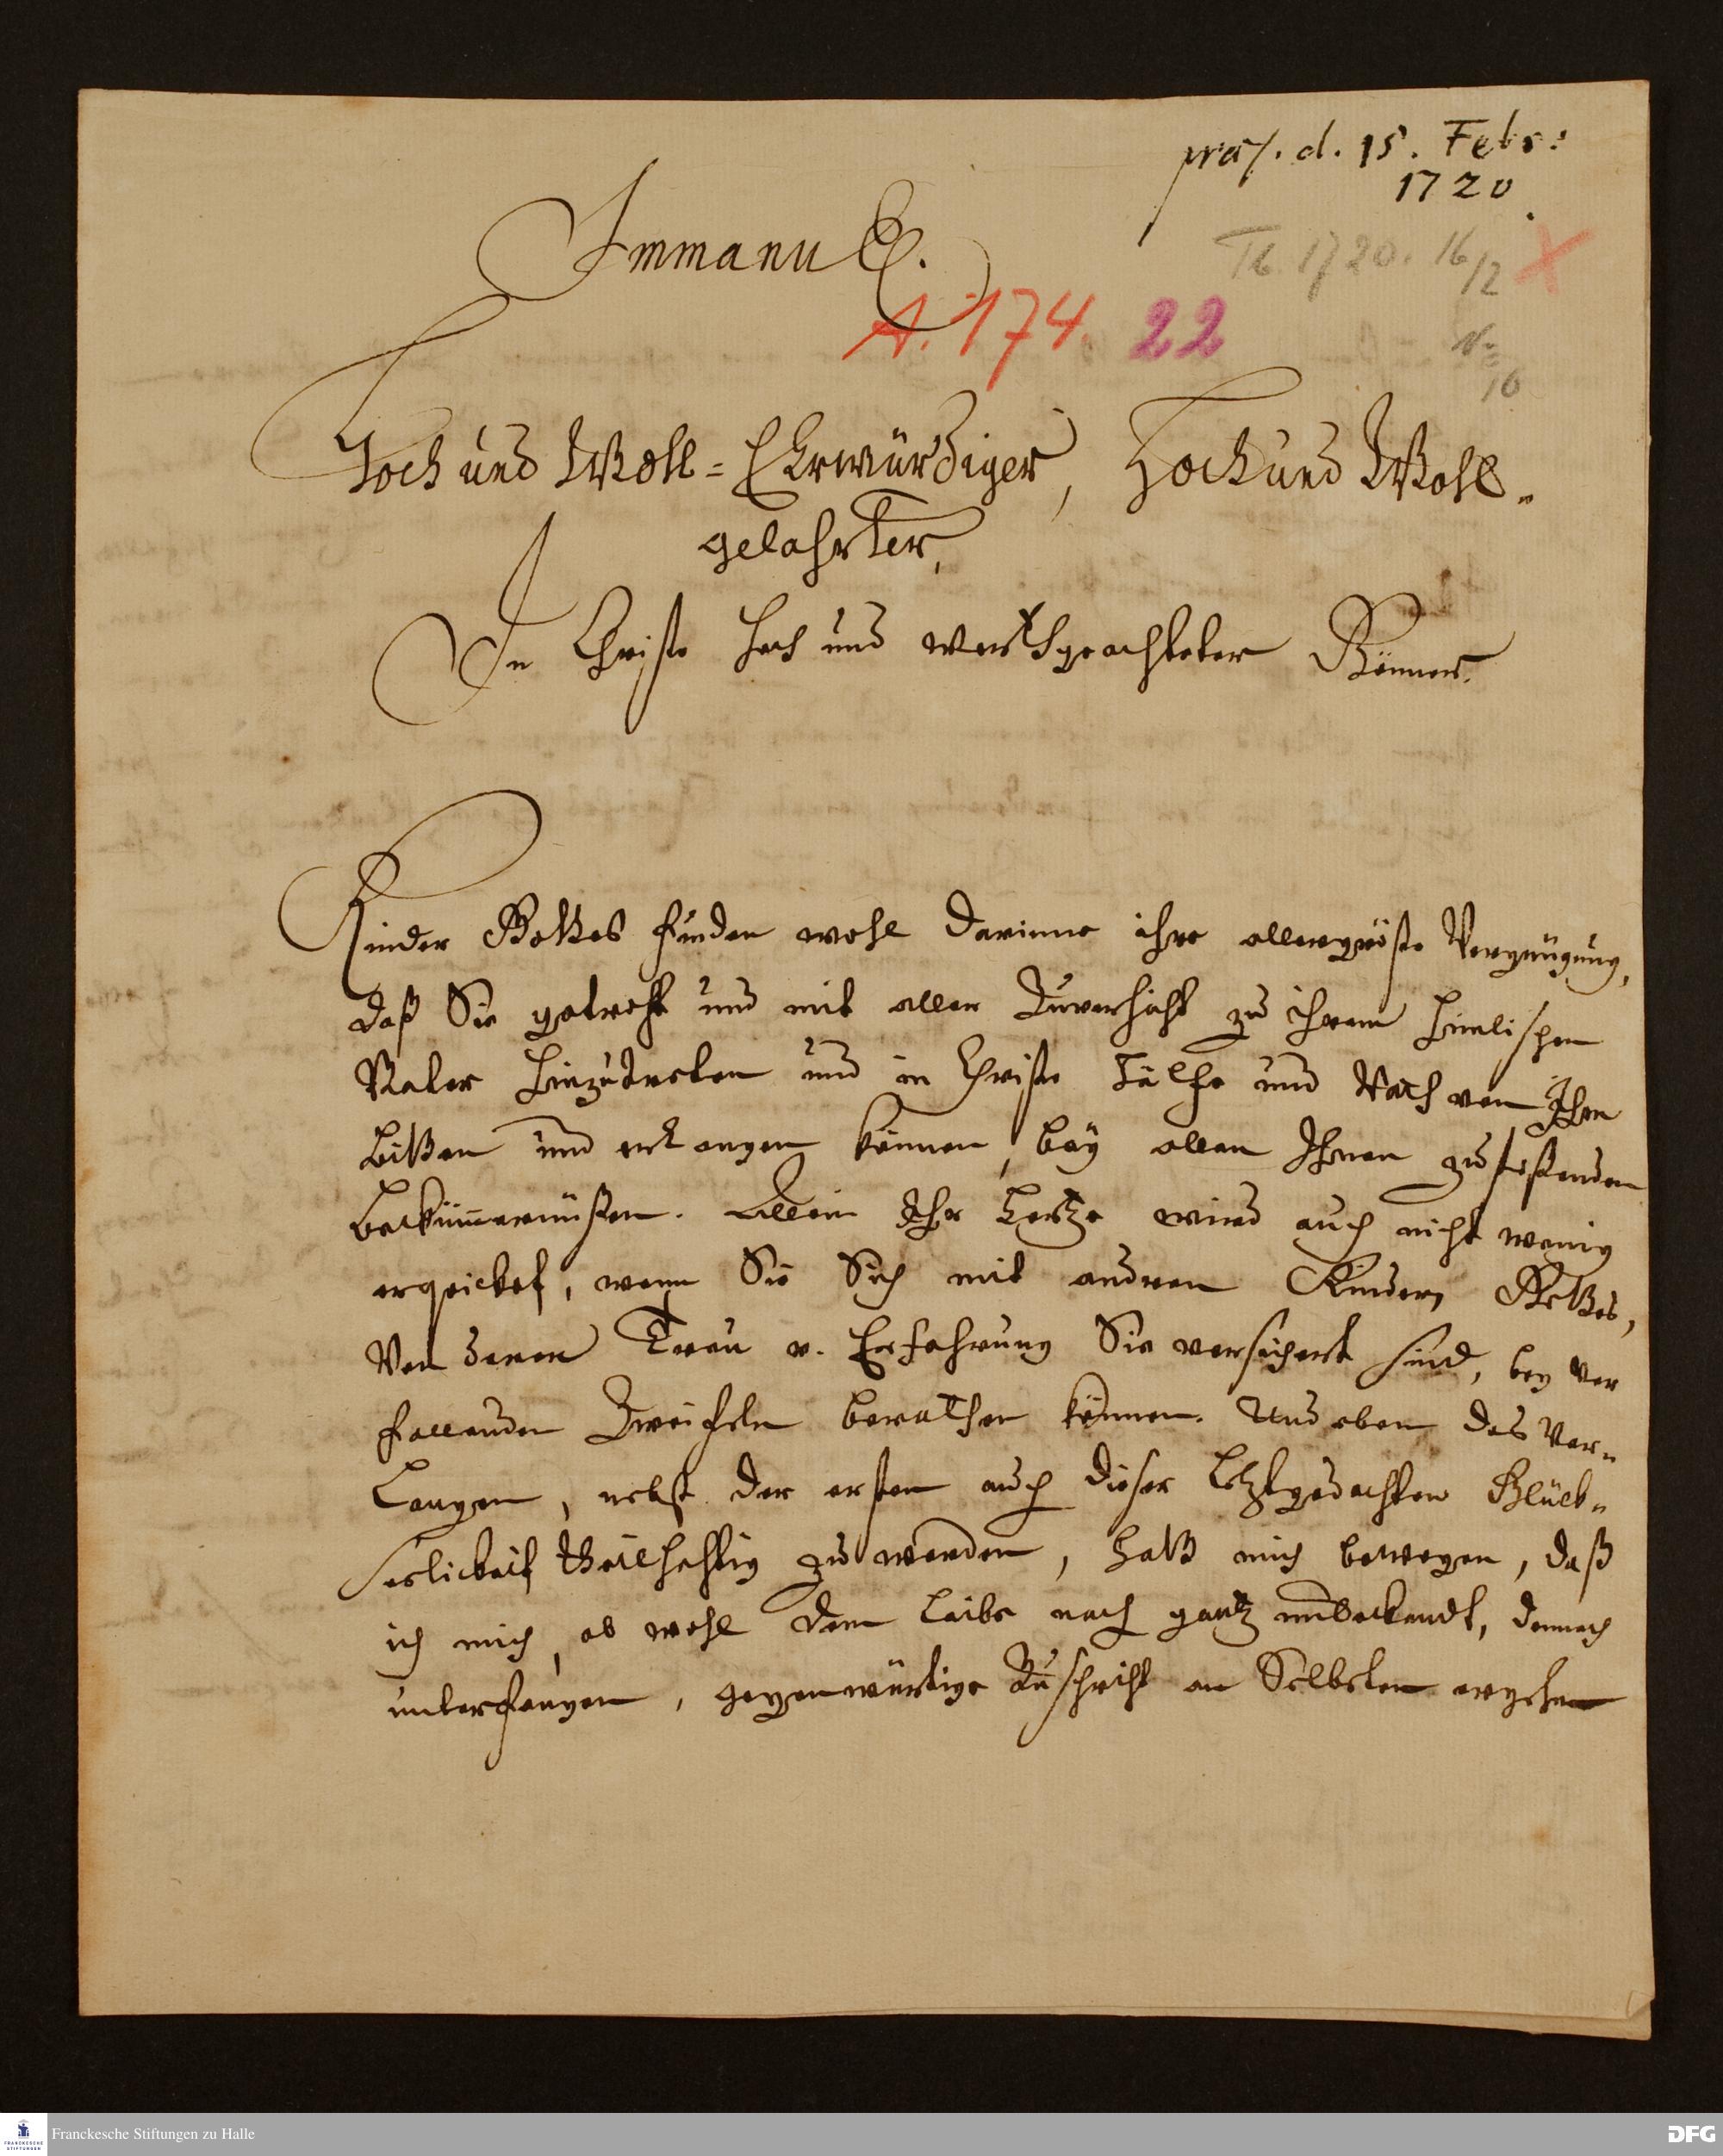 præs. d. 15. Febr:
1720.
ImmanuEl.
Tb. 1720. 16/2 X
A. 174. 22
N:
16
Hoch und Wohl=Ehrwürdiger, Hoch und Wohl-
gelahrter,
In Christo hoch und werthgeachteter Gönner.
Kinder Gottes finden wohl darinne ihre allergröste Vergnügung,
daß Sie getrost und mit aller Zuversicht zu ihrem himlischen
Vater hinzutreten und in Christo Hülfe und Rath von Ihm
bitten und erlangen können, bey allen Ihnen zustoßenden
Bekümmernüßen. Allein Ihr Hertze wird auch nicht wenig
erqvicket, wenn Sie Sich mit andren Kindern Gottes,
Von deren Treu u. Erfahrung Sie versichert sind, bey vor
fallenden Zweifeln berathen können. Und eben das Ver-
langen, nebst der ersten auch dieser letztgedachten Glück-
seelickeit theilhafftig zu werden, hatt mich bewogen, daß
ich mich, ob wohl dem Leibe nach gantz unbekandt, dennoch
unterfangen, gegenwürtige Zuschrifft an Selbten ergehen
Franckesche Stiftungen zu Halle
FRANCKESCHE
STIFTUNGEN
DFG